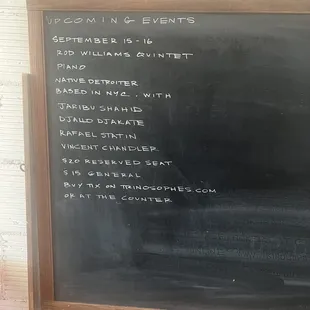 UPCOMING EVENTS
SEPTEMBER 15-16
ROD WILLIAMS QUINTET
PIANO
NATIVE DETROITER
BASED IN NYC. WITH
JARIBU SHAHID
DJALLO DJAKATE
RAFAEL STATIN
VINCENT CHANDLER
$20 RESERVED SEAT
$15 GENERAL
BUY TIX ON TRINOSOPHES.COM
OR AT THE COUNTER